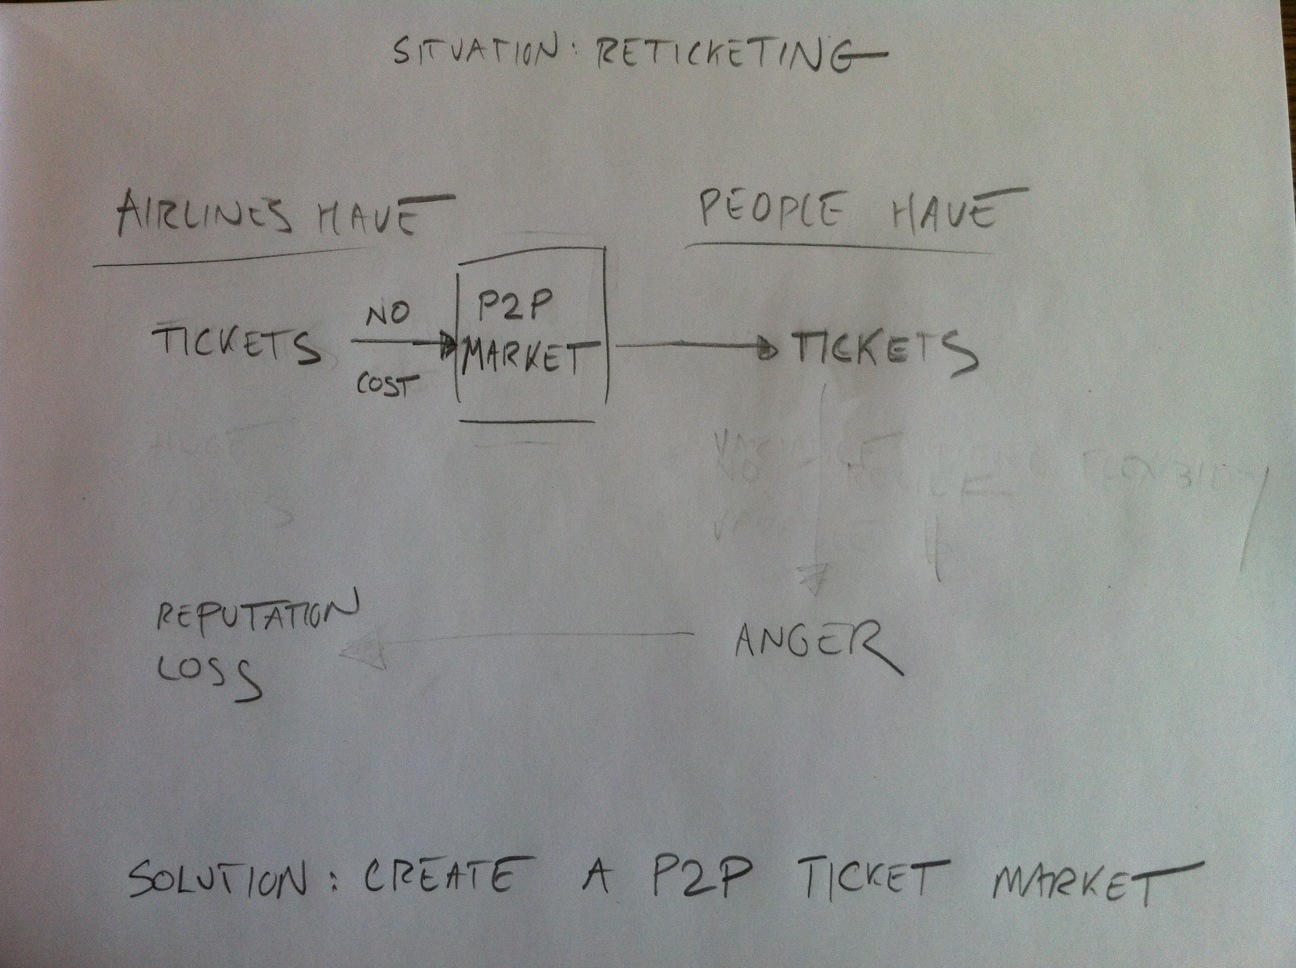 SITUATION: RETICKETING
AIRLINES HAVE
PEOPLE HAVE
TICKETS
NO
COST
P2P
MARKET
TICKETS
FLEXIBILITY
REPUTATION
LOSS
ANGER
SOLUTION: CREATE A P2P TICKET MARKET